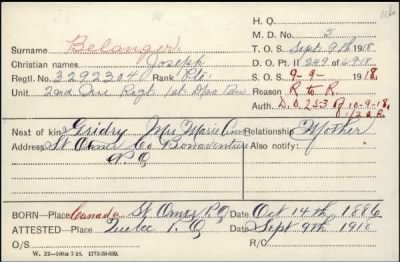 H. Q.
M. D. No. 5
Surname Belanger
T. O. S. Sept 9th 1918.
Christian names Joseph
D. O. Pt. II 249 of 6-9-18
Regtl. No. 3292304 Rank Pte.
S. O. S. 9-9- 1918.
Unit 2nd Que Regt 1st Dps Bn
Reason R to R.
Auth. D.O. 253 of 10-9-18
Next of kin Gridry Mrs Marie Ann Relationship Mother
Address St Omer Co Bonaventure Also notify:
P Q
BORN—Place Canada St Omer P.Q Date Oct 14th 1886
ATTESTED—Place Quebec P. Q Date Sept 9th 1918
O/S R/C
W. 22—100M 7-18. 1772-39-839.